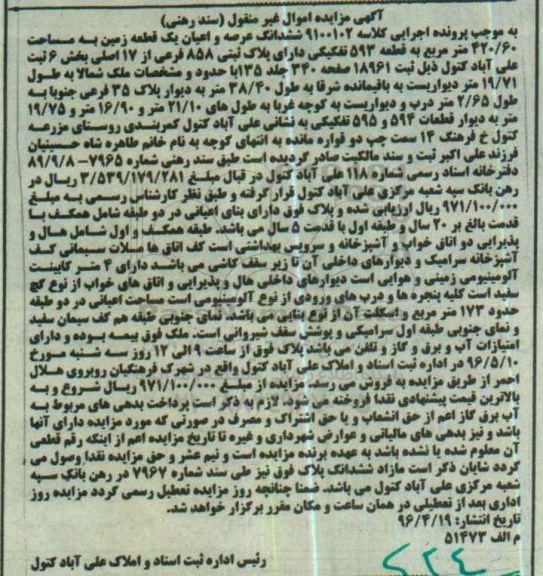 آگهی مزایده اموال غیر منقول (سند رهنی)
به موجب پرونده اجرایی کلاسه ۹۱۰۰۱۰۲ ششدانگ عرصه و اعیان یک قطعه زمین به مساحت
۴۲۰/۶۰ متر مربع به قطعه ۵۹۳ تفکیکی دارای پلاک ثبتی ۸۵۸ فرعی از ۱۷ اصلی بخش ۶ ثبت
علی آباد کتول ذیل ثبت ۱۸۹۶۱ صفحه ۳۴۰ جلد ۱۳۵با حدود و مشخصات ملک شمالا به طول
۱۹/۷۱ متر دیواریست به باقیمانده شرقا به طول ۳۸/۴۰ متر به دیوار پلاک ۳۵ فرعی جنوبا به
طول ۲/۶۵ متر درب و دیواریست به کوچه غربا به طول های ۲۱/۱۰ متر و ۱۶/۹۰ متر و ۱۹/۷۵
متر به دیوار قطعات ۵۹۴ و ۵۹۵ تفکیکی به نشانی علی آباد کتول کمربندی روستای مزرعه
کتول خ فرهنگ ۱۴ سمت چپ دو قواره مانده به انتهای کوچه به نام خانم طاهره شاه حسینیان
فرزند علی اکبر ثبت و سند مالکیت صادر گردیده است طبق سند رهنی شماره ۷۹۶۵-۸۹/۹/۸
دفترخانه اسناد رسمی شماره ۱۱۸ علی آباد کتول در قبال مبلغ ۳/۵۳۹/۱۷۹/۲۸۱ ریال در
رهن بانک سپه شعبه مرکزی علی آباد کتول قرار گرفته و طبق نظر کارشناس رسمی به مبلغ
۹۷۱/۱۰۰/۰۰۰ ریال ارزیابی شده و پلاک فوق دارای بنای اعیانی در دو طبقه شامل همکف با
قدمت بالغ بر ۲۰ سال و طبقه اول با قدمت ۵ سال می باشد. طبقه همکف و اول شامل هال و
پذیرایی دو اتاق خواب و آشپزخانه و سرویس بهداشتی است کف اتاق ها ملات سیمانی کف
آشپزخانه سرامیک و دیوارهای داخلی آن تا زیر سقف کاشی می باشد دارای ۴ متر کابینت
آلومینیومی زمینی و هوایی است دیوارهای داخلی هال و پذیرایی و اتاق های خواب از نوع گچ
سفید است کلیه پنجره ها و درب های ورودی از نوع آلومینیومی است مساحت اعیانی در دو طبقه
حدود ۱۷۳ متر مربع و اسکلت آن از نوع بنایی می باشد نمای جنوبی طبقه هم کف سیمان سفید
و نمای جنوبی طبقه اول سرامیکی و پوشش سقف شیروانی است. ملک فوق بیمه بوده و دارای
امتیازات آب و برق و گاز و تلفن می باشد پلاک فوق از ساعت ۹ الی ۱۲ روز سه شنبه مورخ
۹۶/۵/۱۰ در اداره ثبت اسناد و املاک علی آباد کتول واقع در شهرک فرهنگیان روبروی هلال
احمر از طریق مزایده به فروش می رسد. مزایده از مبلغ ۹۷۱/۱۰۰/۰۰۰ ریال شروع و به
بالاترین قیمت پیشنهادی نقدا فروخته می شود. لازم به ذکر است پرداخت بدهی های مربوط به
آب برق گاز اعم از حق انشعاب و یا حق اشتراک و مصرف در صورتی که مورد مزایده دارای آنها
باشد و نیز بدهی های مالیاتی و عوارض شهرداری و غیره تا تاریخ مزایده اعم از اینکه رقم قطعی
آن معلوم شده یا نشده باشد به عهده برنده مزایده است و نیم عشر و حق مزایده نقدا وصول می
گردد شایان ذکر است مازاد ششدانگ پلاک فوق نیز طی سند شماره ۷۹۶۷ در رهن بانک سپه
شعبه مرکزی علی آباد کتول می باشد. ضمنا چنانچه روز مزایده تعطیل رسمی گردد مزایده روز
اداری بعد از تعطیلی در همان ساعت و مکان مقرر برگزار خواهد شد.
تاریخ انتشار: ۹۶/۴/۱۹
م الف ۵۱۴۷۳
رئیس اداره ثبت اسناد و املاک علی آباد کتول